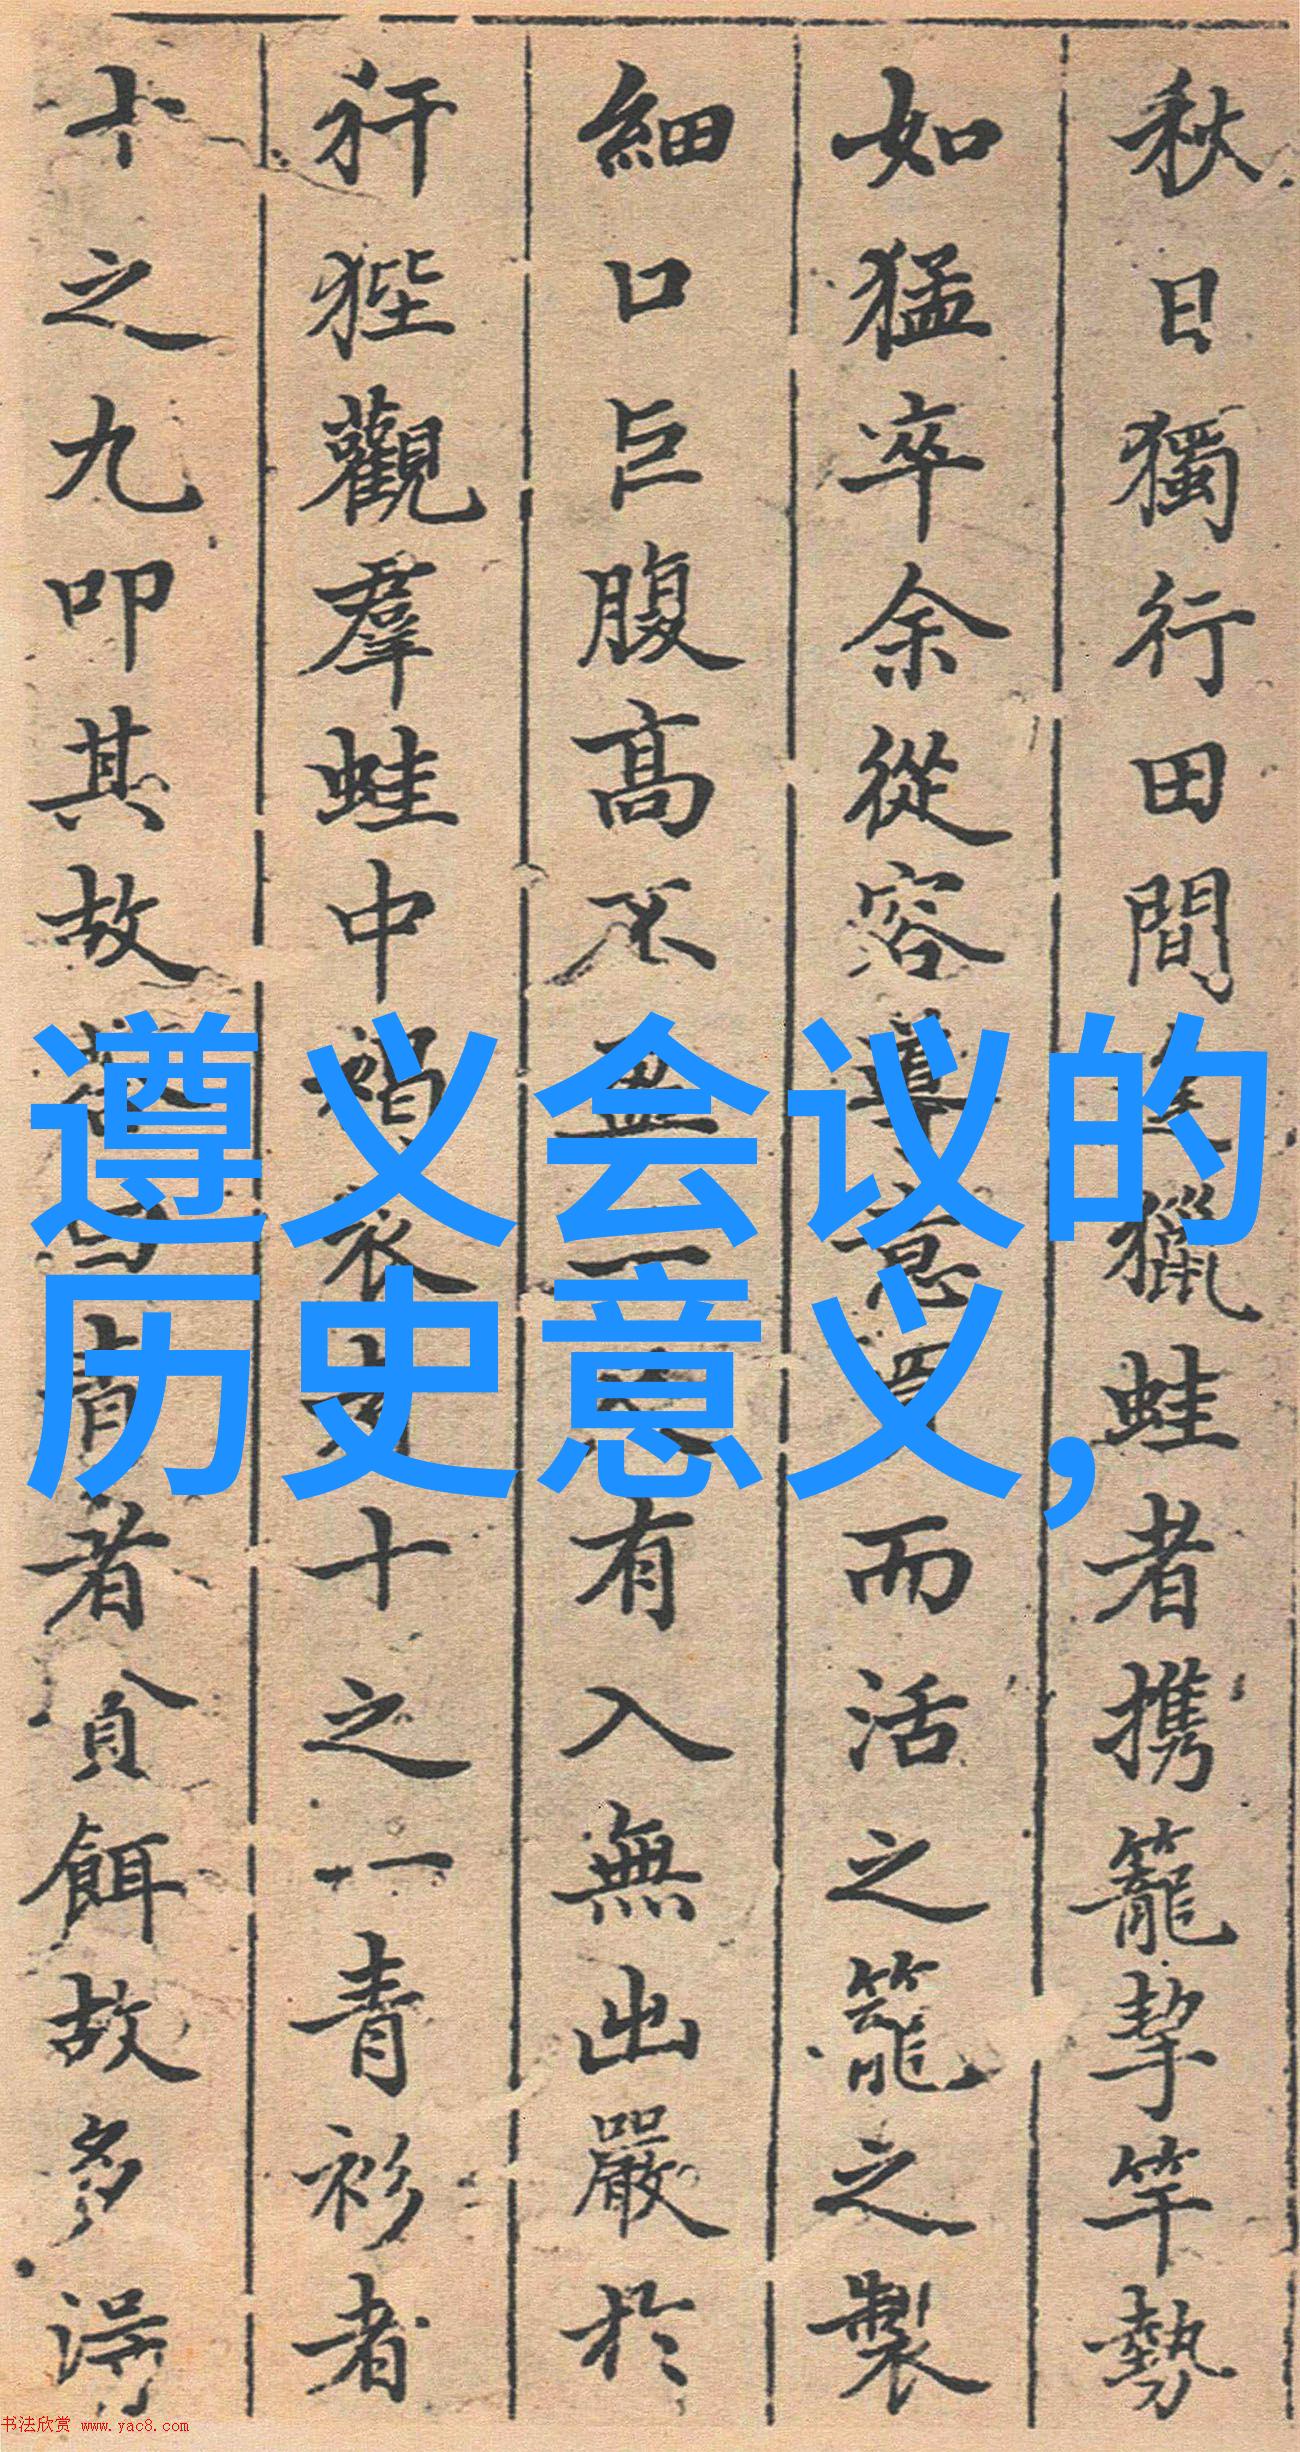 秋日獨行田間獵蛙者携籠挈竿勢
如猛卒余從容導意而活之籠之製
細口巨腹高不盈一有入無出嚴於
犴狴觀羣蛙中褐衣者十之一青衫者
十之九叩其故曰青者貪餌故多得
遵义会议的
历史意义,
书法欣赏 www.yac8.com